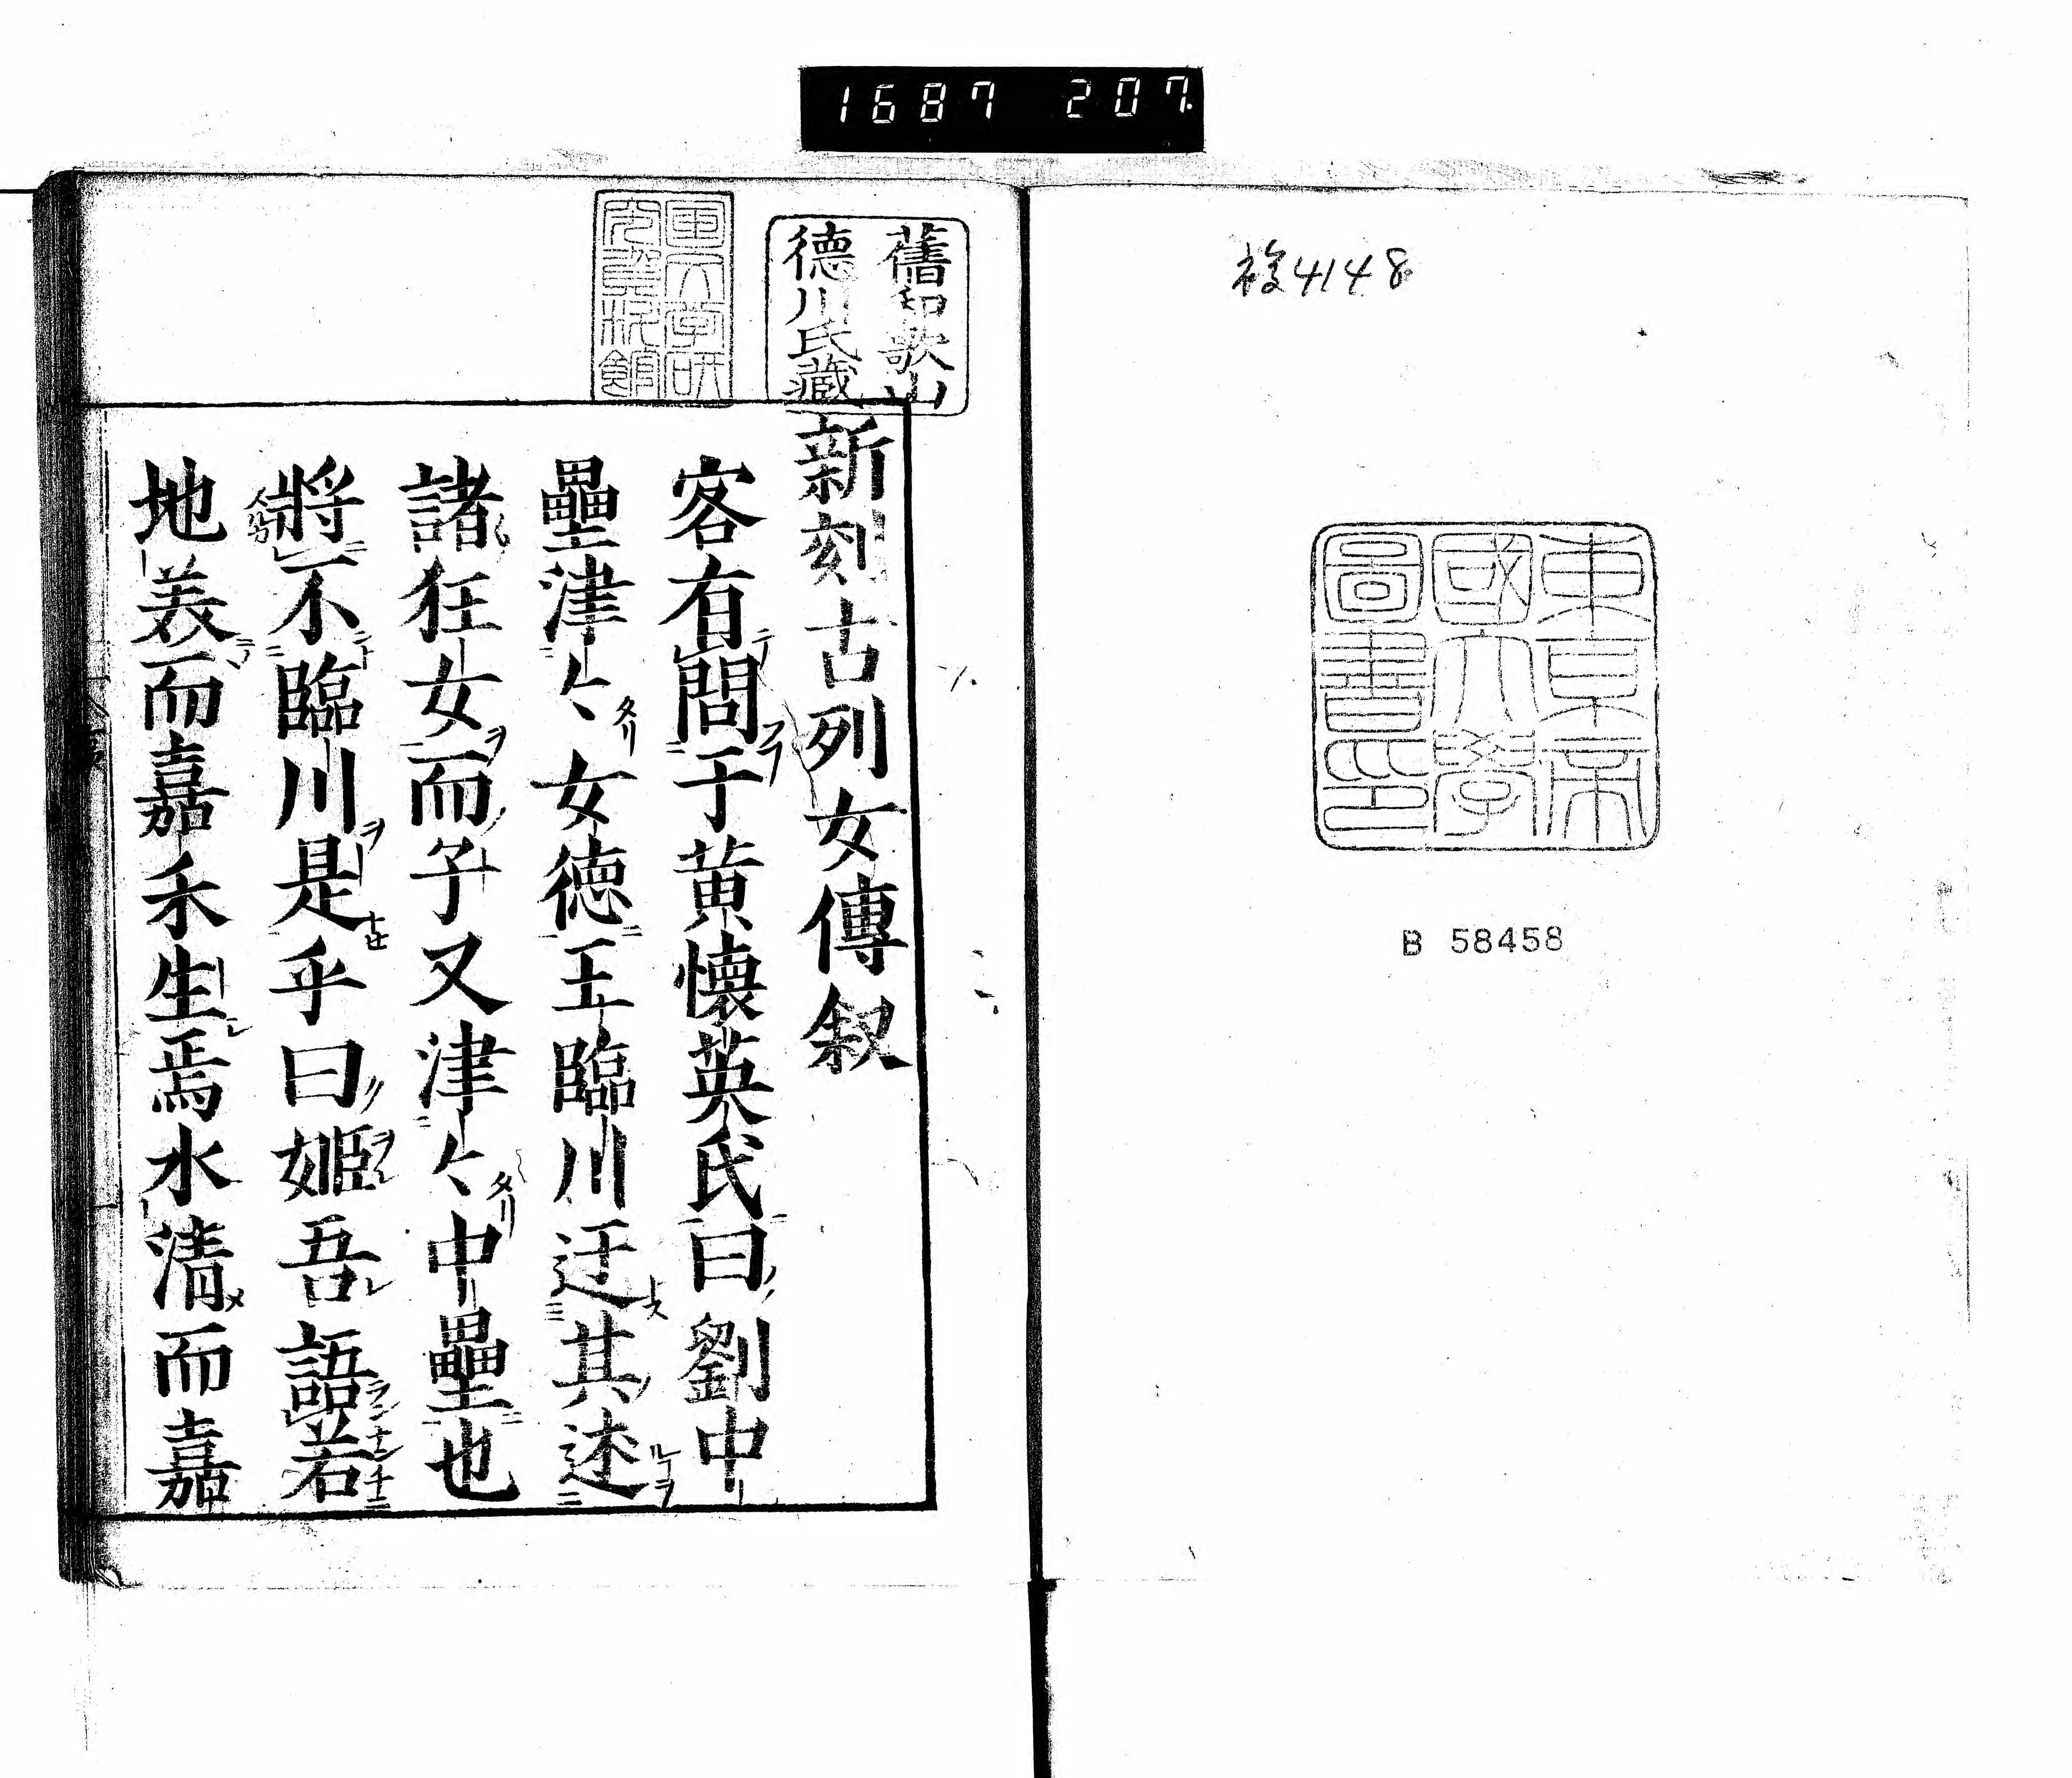 1687 207.
稜4148
東京帝
國大學
圖書印
B 58458
舊和歌山
德川氏藏
新刻古列女傳叙
客有問于黄懐英氏曰劉中
壘津〻女德王臨川迂其述
諸狂女而子又津〻中壘也
將不臨川是乎曰姬吾語若
地美而嘉禾生焉水清而嘉